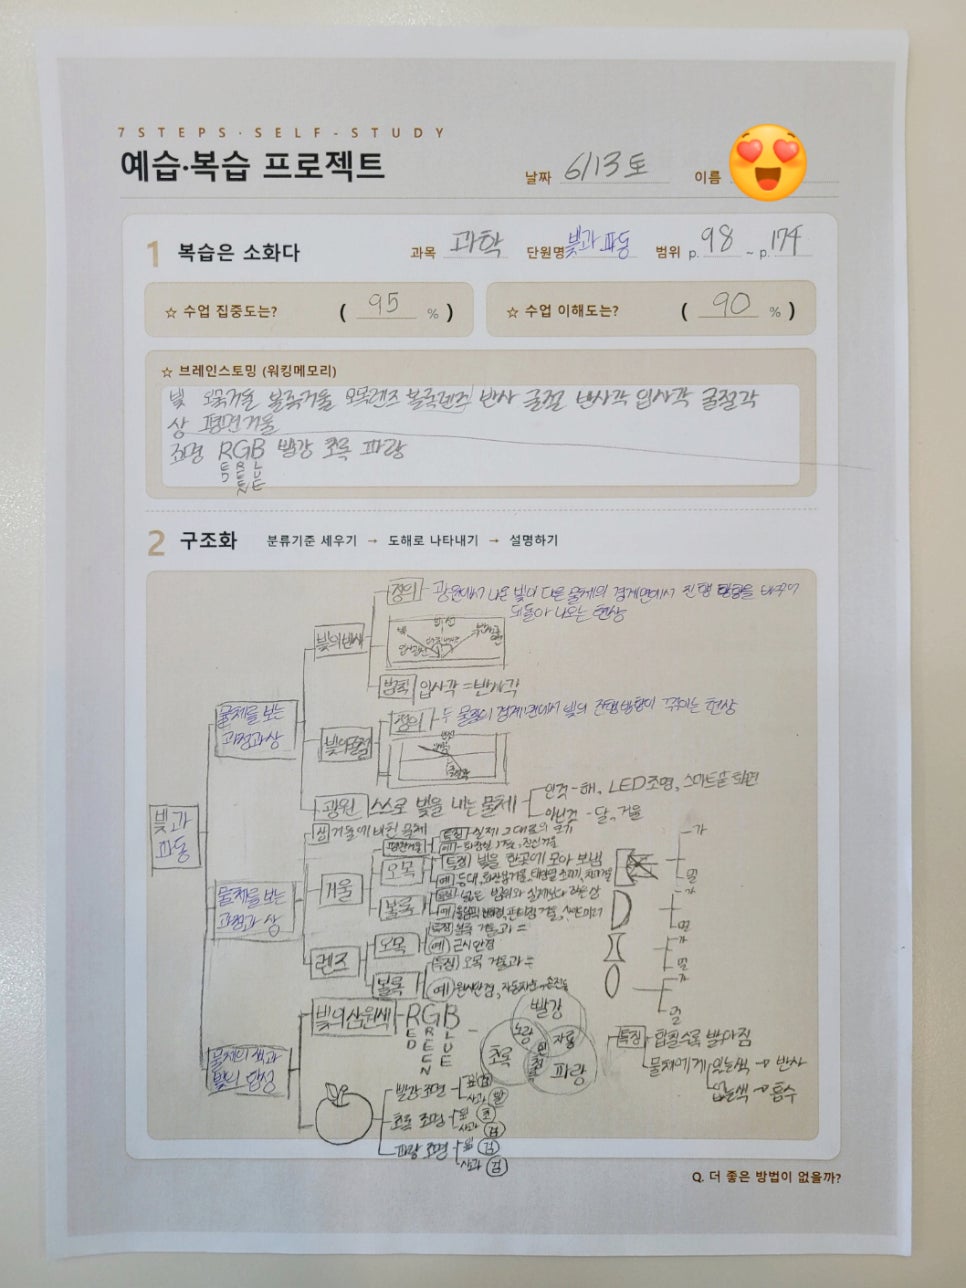 7 STEPS · SELF - STUDY
예습·복습 프로젝트
날짜 6/13 토 이름
1 복습은 소화다 과목 과학 단원명 빛과 파동 범위 p. 98 ~ p. 174
☆ 수업 집중도는? ( 95 % )
☆ 수업 이해도는? ( 90 % )
☆ 브레인스토밍 (워킹메모리)
빛 오목거울 볼록거울 오목렌즈 볼록렌즈 반사 굴절 반사각 입사각 굴절각
상 평면거울
조명 RGB 빨강 초록 파랑
RED GREEN BLUE
2 구조화 분류기준 세우기 → 도해로 나타내기 → 설명하기
빛과 파동
물체를 보는 과정과 상
빛의 반사
정의 광원에서 나온 빛이 다른 물체의 경계면에서 진행 방향을 바꾸어
되돌아 나오는 현상
법칙 입사각 = 반사각
빛의 굴절
정의 두 물질의 경계면에서 빛의 진행방향이 꺾이는 현상
광원 스스로 빛을 내는 물체
인것 - 해, LED조명, 스마트폰 화면
아닌것 - 달, 거울
물체를 보는 과정과 상
상 거울에 비친 물체
거울
평면거울
특징 실제 그대로의 크기
오목
특징 빛을 한곳에 모아 보냄
볼록
렌즈
오목
특징 볼록 거울과 =
예 근시안경
볼록
특징 오목 거울과 =
예 원시안경,
가
멀
가
멀
가
멀
가
멀
물체의 색과 빛의 합성
빛의 삼원색 RGB
RED GREEN BLUE
빨강
노랑 자홍
초록 흰 파랑
청록
특징 합칠수록 밝아짐
물체에게 있는색 → 반사
없는색 → 흡수
빨간 조명
사과 빨
초록 조명
잎 초
사과 검
파랑 조명
잎 검
사과 검
Q. 더 좋은 방법이 없을까?